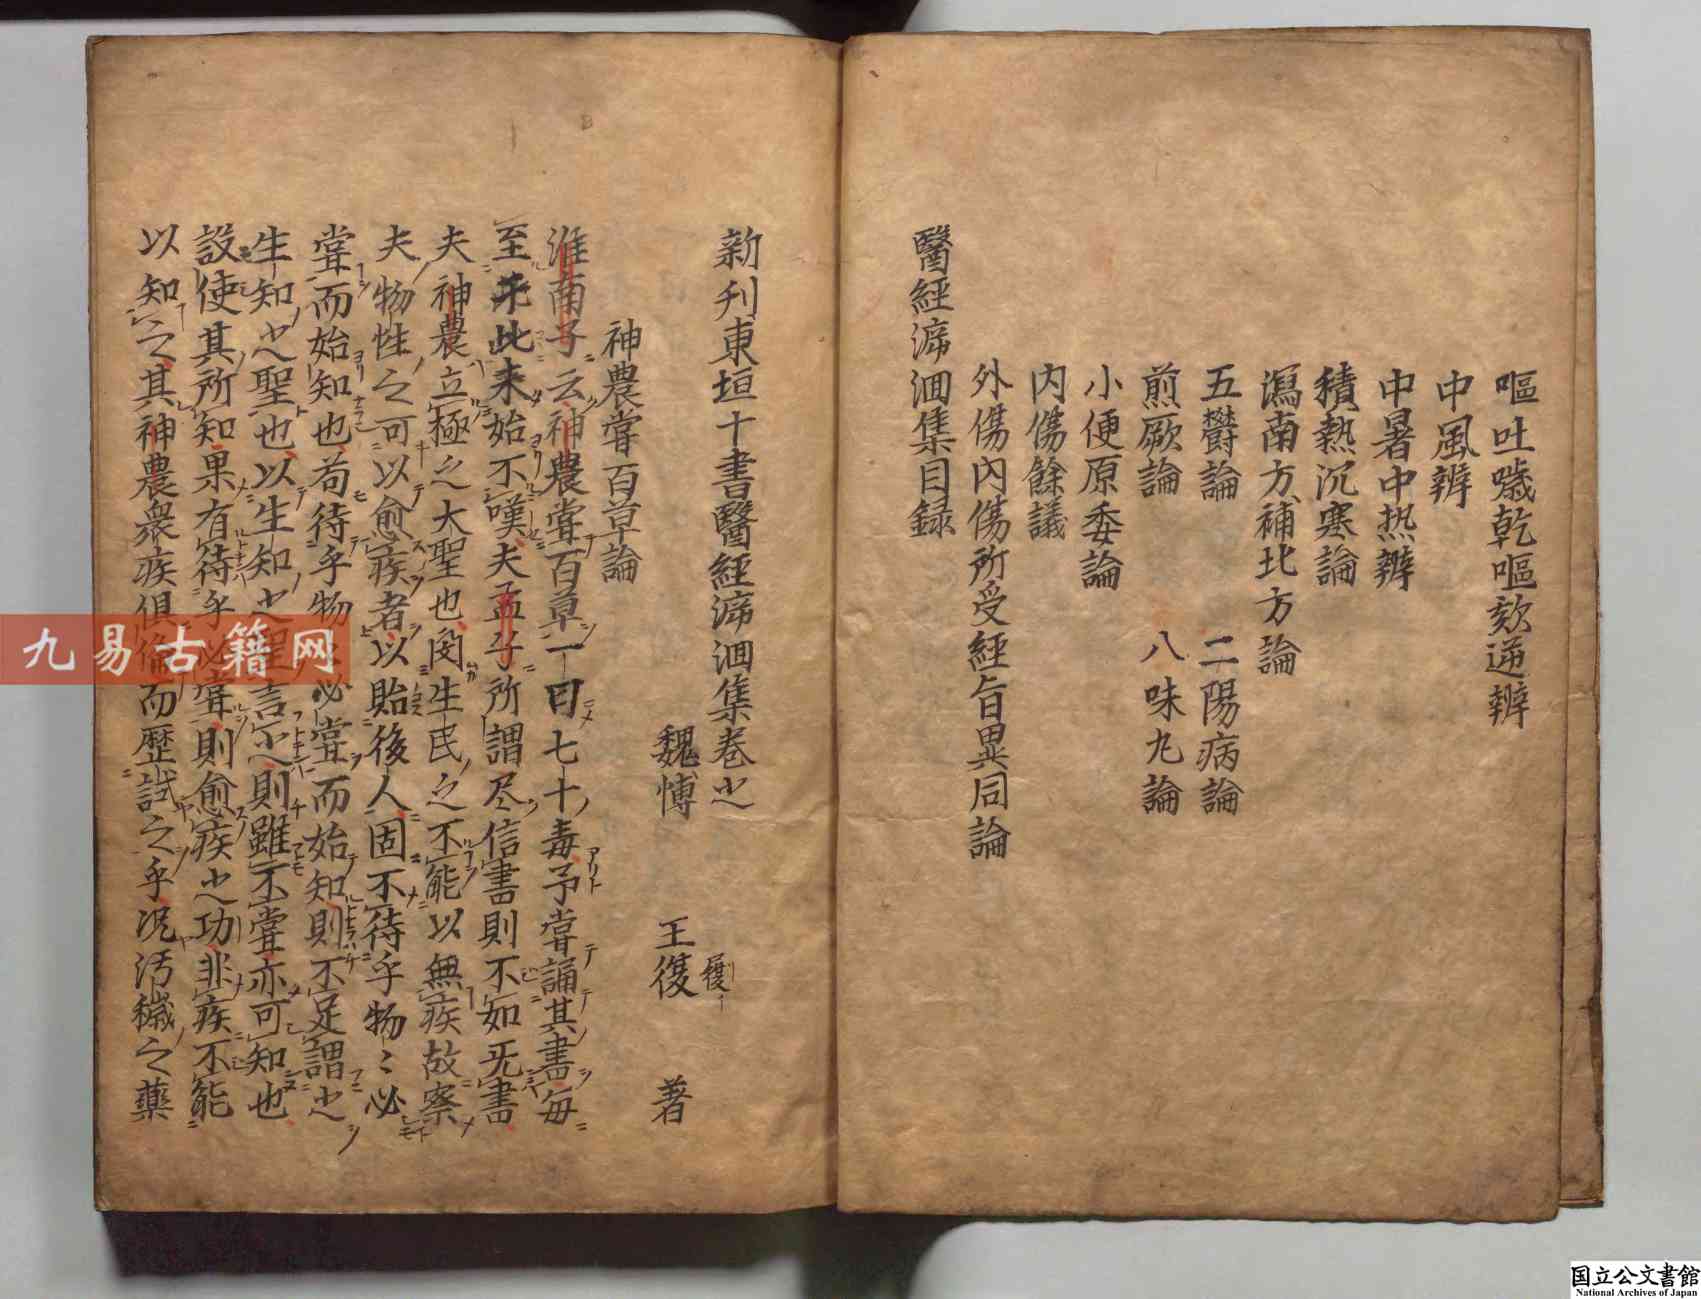 嘔吐噦乾嘔欬逆辨
中風辨
中暑中热辨
積熱沉寒論
瀉南方補北方論
五欝論 二陽病論
煎厥論 八味丸論
小便原委論
内傷餘議
外傷内傷所受經旨異同論
醫經泝洄集目録
新刋東垣十書醫經泝洄集卷之
魏愽 王復 著
履
神農嘗百草論
淮南子云神農嘗百草一日七十毒予嘗誦其書每
至此未始不嘆夫孟子所謂尽信書則不如无書
夫神農立極之大聖也閔生民之不能以無疾故察
夫物性之可以愈疾者以貽後人固不待乎物〻必
嘗而始知也苟待乎物〻必嘗而始知則不足謂之
生知之聖也以生知之聖言之則雖不嘗亦可知也
設使其所知果有待乎必嘗則愈疾之功非疾不能
以知之其神農衆疾俱備而歴試之乎况汚穢之藥
九易古籍网
国立公文書館
National Archives of Japan